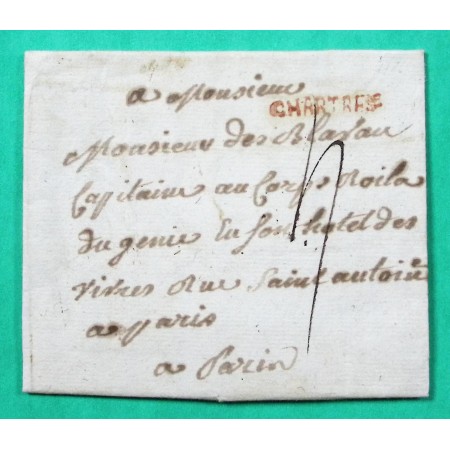 a Monsieur
CHARTRES
Monsieur des
Capitaine au Corps Roila
du genie En son hotel des
vivres Rue Saint antoine
a paris
a Paris